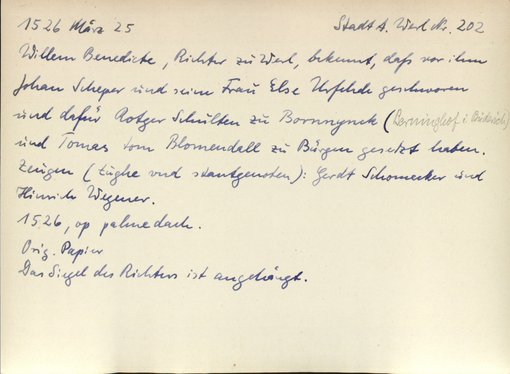 1526 März 25 Stadt A. Werl Nr. 202
Willem Benedicte, Richter zu Werl, bekennt, daß vor ihm
Johan Scheper und seine Frau Else Urfehde geschworen
und dafür Rotger Schulten zu Bornynck (Berninghof i. Büderich)
und Tomas tom Blomendall zu Bürgen gesetzt haben.
Zeugen (tughe und stantgenoten): Gerdt Schomecker und
Hinrich Wegener.
1526, op palmedach.
Orig. Papier
Das Siegel des Richters ist angehängt.